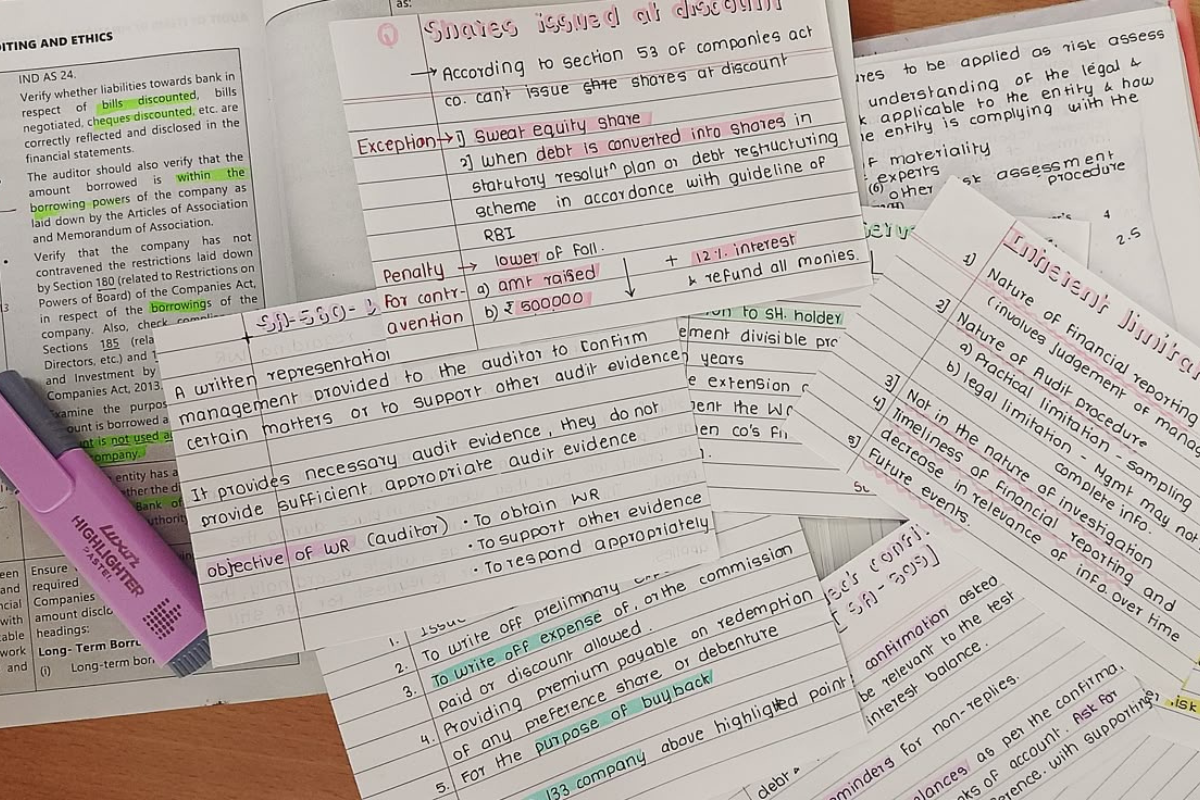 DITING AND ETHICS
IND AS 24.
Verify whether liabilities towards bank in
respect of bills discounted, bills
negotiated, cheques discounted, etc. are
correctly reflected and disclosed in the
financial statements.
The auditor should also verify that the
amount borrowed is within the
borrowing powers of the company as
laid down by the Articles of Association
and Memorandum of Association.
Verify that the company has not
contravened the restrictions laid down
by Section 180 (related to Restrictions on
Powers of Board) of the Companies Act,
in respect of the borrowings of the
company. Also, check
Sections 185
Directors, etc.) and
and Investment by
Companies Act, 2013.
the purpos
ount is borrowed a
is not used
ompany.
entity has a
Bank of
Ensure
required
Companies
amount disclo
headings:
Long- Term Borr
(i) Long-term bor
LUXOR
HIGHLIGHTER
PASTEL
as:
Q Shares issued at discount
→ According to section 53 of companies act
co. can't issue shares at discount
Exception→ 1] sweat equity share
2] when debt is converted into shares in
statutory resolutⁿ plan or debt restructuring
scheme in accordance with guideline of
RBI
Penalty → lower of foll.
for contr- a) amt raised + 12% interest
avention b) ₹ 500,000 & refund all monies.
SA-580-
A written representatio
management provided to the auditor to confirm
certain matters or to support other audit evidence
It provides necessary audit evidence, they do not
provide sufficient appropriate audit evidence
objective of WR (auditor) • To obtain WR
• To support other evidence
• To respond appropriately
to be applied as risk assess
understanding of the legal &
applicable to the entity & how
entity is complying with the
materiality
experts
(6) other assessment
procedure
4
2.5
to SH. holder
ement divisible pro
years
extension
ent the
en co's
Inherent limita
1) Nature of Financial reporting
(involves judgement of manag
2] Nature of Audit procedure
a) Practical limitation - sampling
b) legal limitation - Mgmt may not
complete info.
3] Not in the nature of investigation
4] Timeliness of financial reporting and
decrease in relevance of info. over time
5] Future events.
1. Issue
2. To write off prelimnary
3. To write off expense of, or the commission
paid or discount allowed.
4. Providing premium payable on redemption
of any preference share or debenture
5. For the purpose of buyback
133 company above highlighted point
debt
SA - 505]
confirmation asked
be relevant to the test
interest balance.
minders for non-replies.
alances as per the confirma
ks of account. Ask for
erence. with supporting